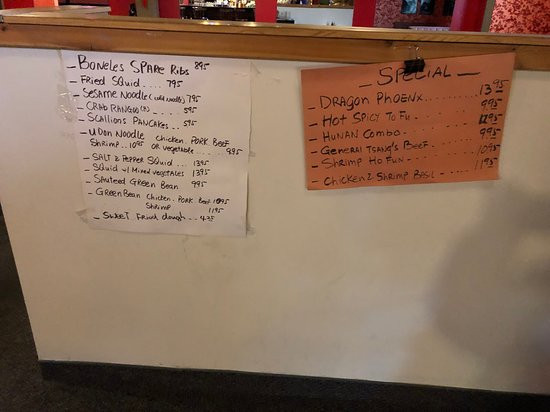 - Boneles SPARE Ribs 895
- Fried Squid.... 795
- Sesame Noodle (cold noodle) 795
- CRAB RANGOO (8) .... 595
- Scallions PANCAKES .. 595
- UDON Noodle chicken. PORK BEEF
Shrimp.. 1095 or vegetable.... 995
- SALT & PEPPER SQuid... 1395
- SQuid w/ Mixed vegetales 1395
- Sauteed GREEN Bean 995
- GREEN Bean chicken. PORK Beef 1095
Shrimp 1195
- SWEET Fried dough... 4.35
- SPECIAL -
- DRAGON PHOENX.... 1395
- Hot SPICY To Fu.. 995
- HUNAN Combo.. 1295
- GENERAL TSANG'S BEEF. 995
- Shrimp Ho FUN... 1095
- Chicken & Shrimp BASL. 1195